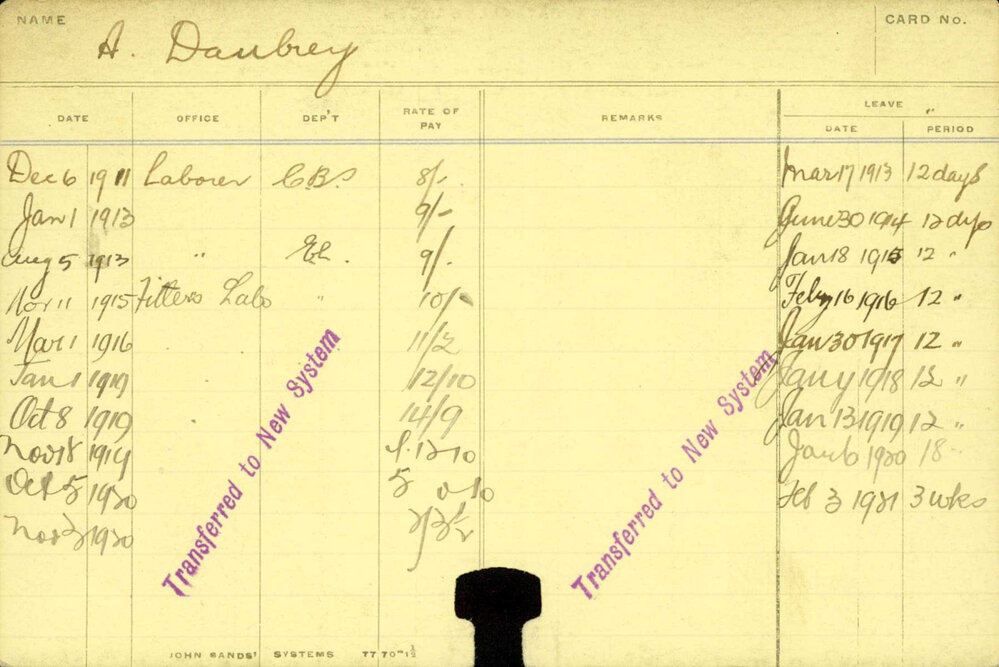 NAME A. Daubrey CARD No.
LEAVE "
DATE OFFICE DEP'T RATE OF PAY REMARKS DATE PERIOD
Dec 6 1911 Laborer CBS 8/- Mar 17 1913 12 days
Jan 1 1913 9/- June 30 1914 12 dys
Aug 5 1913 " EL. 9/- Jan 18 1915 12 "
Nov 11 1915 Fitters Lab " 10/- Feby 16 1916 12 "
Mar 1 1916 11/2 Jan 30 1917 12 "
Jan 1 1919 12/10 Jany 1918 12 "
Oct 8 1919 14/9 Jan 13 1919 12 "
Nov 18 1919 12 10 Jan 6 1920 18
Oct 5 1920 5 0 10 Feb 3 1921 3 wks
Nov 3 1920
Transferred to New System
Transferred to New System
JOHN SANDS' SYSTEMS